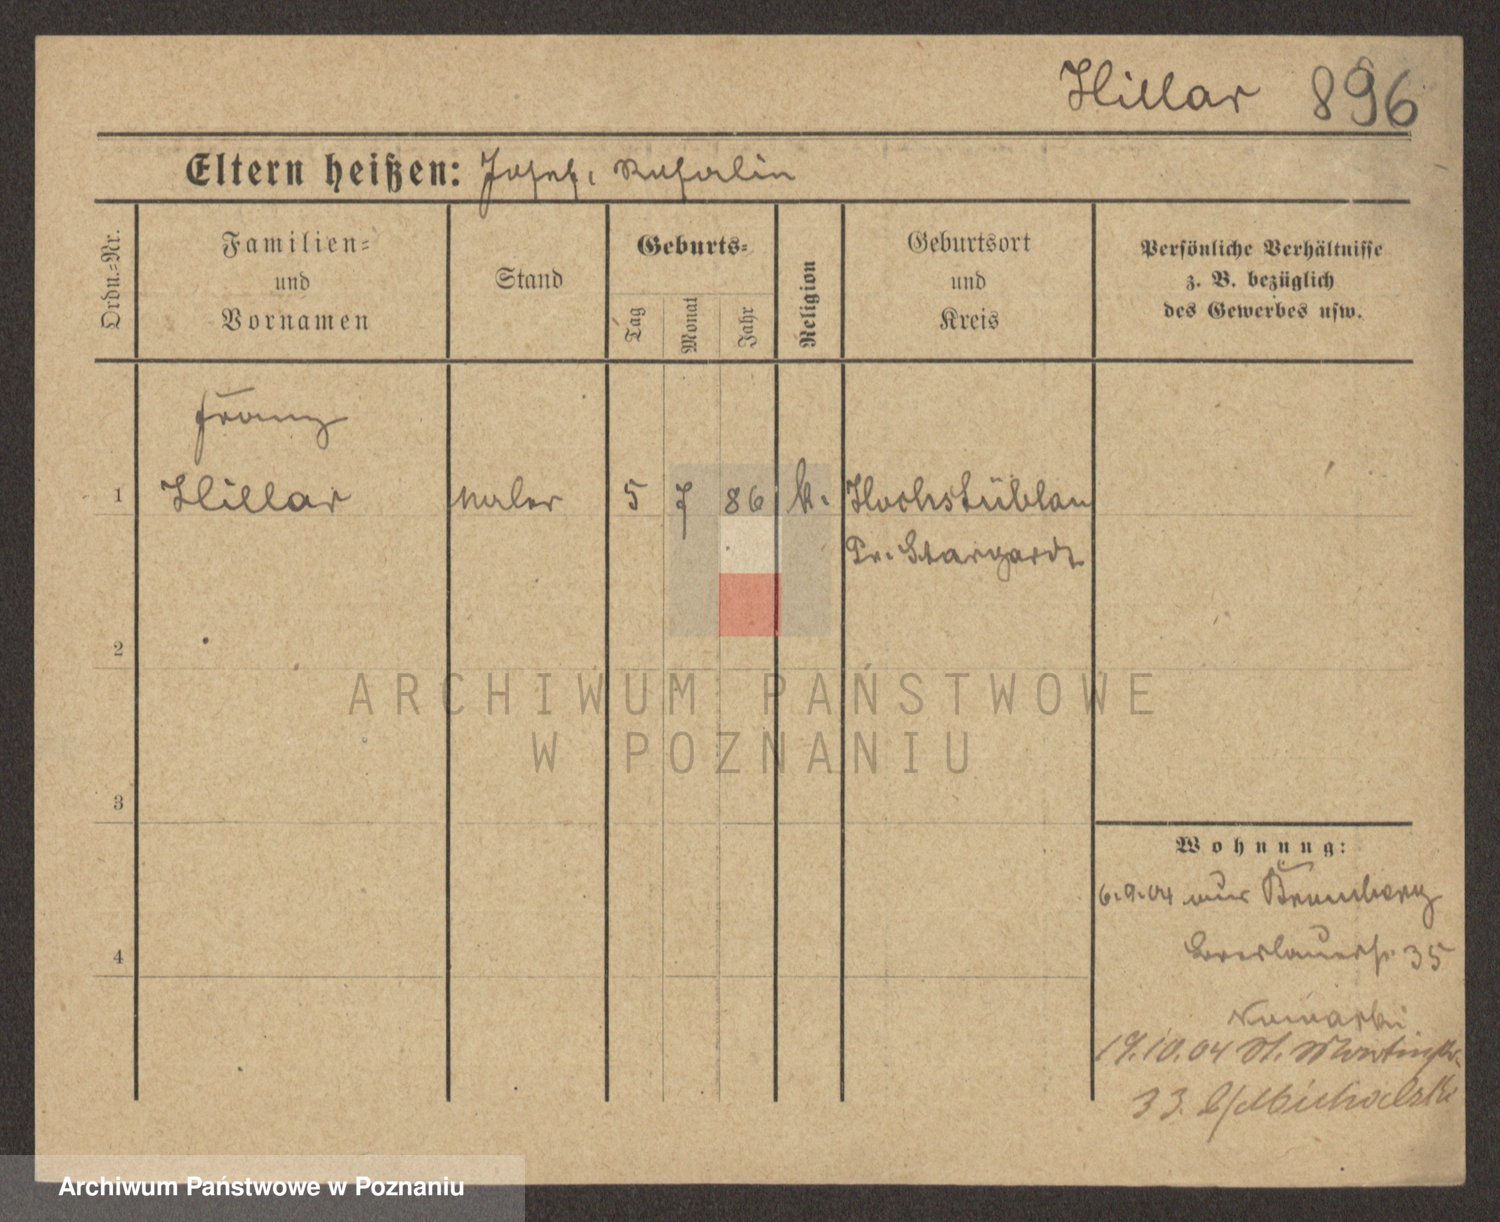 Hillar 896
Eltern heißen: Josef, Rosalie
Ordn.=Nr.
Familien=
und
Vornamen
Stand
Geburts=
Tag
Monat
Jahr
Religion
Geburtsort
und
Kreis
Persönliche Verhältnisse
z. B. bezüglich
des Gewerbes usw.
Franz
1 Hillar Maler 5 7 86 k. Hochstüblau
Pr. Stargardt
2
3
4
Wohnung:
6.9.04 aus Bromberg
Breslauerstr. 35
19.10.04 St. Martinstr.
33. b/Michalski
ARCHIWUM PAŃSTWOWE
W POZNANIU
Archiwum Państwowe w Poznaniu